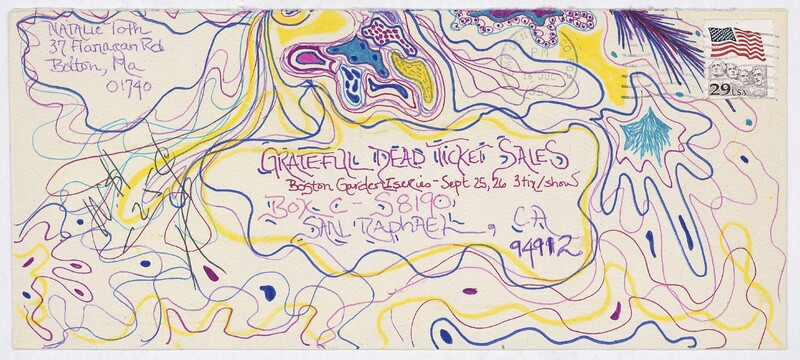 NATALIE Toth
37 Flanagan Rd
Bolton, Ma
01740
29 USA
GRATEFUL DEAD TICKET SALES
Boston Garden I series - Sept 25, 26 3 tix/show
BOX C-S8190
SAN RAPHAEL, CA
94912